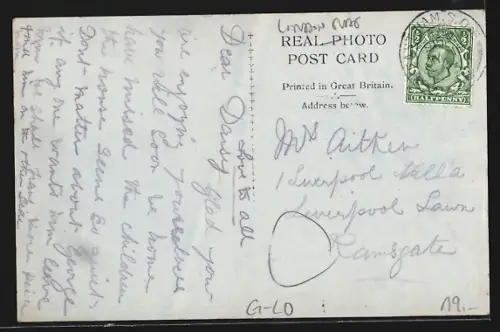 LONDON
REAL PHOTO
POST CARD
Printed in Great Britain.
Address below.
HALFPENNY
Mrs Aitken
1 Liverpool Villa
Liverpool Lawn
Ramsgate
Love to all
Dear Daisy glad your
are enjoying yourselves
you will soon be home
have missed the children
the house seems so quiet
Dont matter about George
if any one wants him
we shall have more
him on the other side
G-LO
19,-